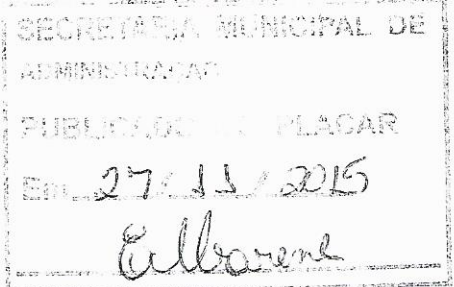 SECRETARIA MUNICIPAL DE
ADMINISTRAÇÃO
PUBLICADO PLACAR
Em 27/11/2015